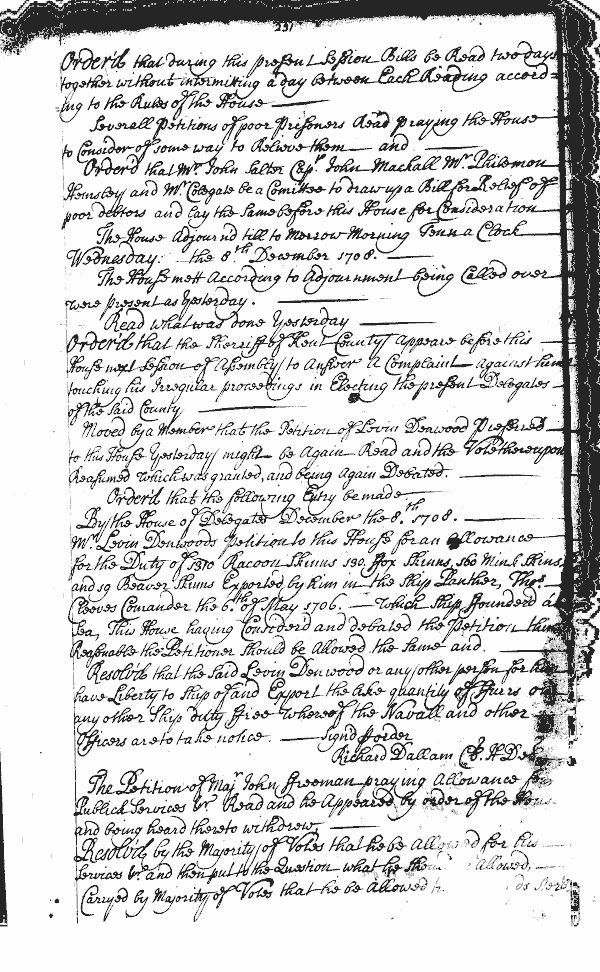 237
Order'd that during this present Session Bills be Read two days
together without intermitting a day between Each Reading accord=
ing to the Rules of the House
Severall Petitions of poor Prisoners Read praying the House
to Consider of some way to Relieve them and
Order'd that Mr. John Salter Capt. John Mackall Mr. Philemon
Hemsley and Mr. Colegate be a Comittee to draw up a Bill for Relief of
poor debtors and lay the Same before this House for Consideration
The House Adjourn'd till to Morrow Morning Tenn a Clock
Wednesday: the 8th December 1708.
The House mett According to Adjournment being Called over
were present as Yesterday.
Read what was done Yesterday
Order'd that the Sherriff of Kent County Appeare before this
House next Session of Assembly to Answer a Complaint against him
touching his Irregular proceedings in Electing the present Delegates
of the Said County
Moved by a Member that the Petition of Levin Denwood Preferred
to this House Yesterday might be Again Read and the Vote thereupon
Reasumed which was granted, and being Again Debated.
Order'd that the following Entry be made
By the House of Delegates December the 8th. 1708.
Mr. Levin Denwoods Petition to this House for an allowance
for the Duty of 1310 Racoon Skinns 190, ffox Skinns, 160 Mink Skins
and 19 Beaver Skinns Exported by him in the Ship Panther, Thos.
Cleeves Comander the 6th of May 1706. which Ship ffounder'd at
Sea, This House having Considerd and debated the Petition think
Reasonable the Petitioner Should be Allowed the Same and.
Resolv'd that the Said Levin Denwood or any other person for him
have Liberty to Ship off and Export the like quantity of ffurrs on
any other Ship duty ffree whereof the Navall and other
Officers are to take notice. Signd p order
Richard Dallam Cl. H Del
The Petition of Majr. John ffreeman praying Allowance for
Publick Services &c Read and he Appeared by order of the House
and being heard thereto withdrew,
Resolv'd by the Majority of Votes that he be Allowed for his
Services &c and then put to the Question what he Should Allowed,
Carryed by Majority of Votes that he be Allowed